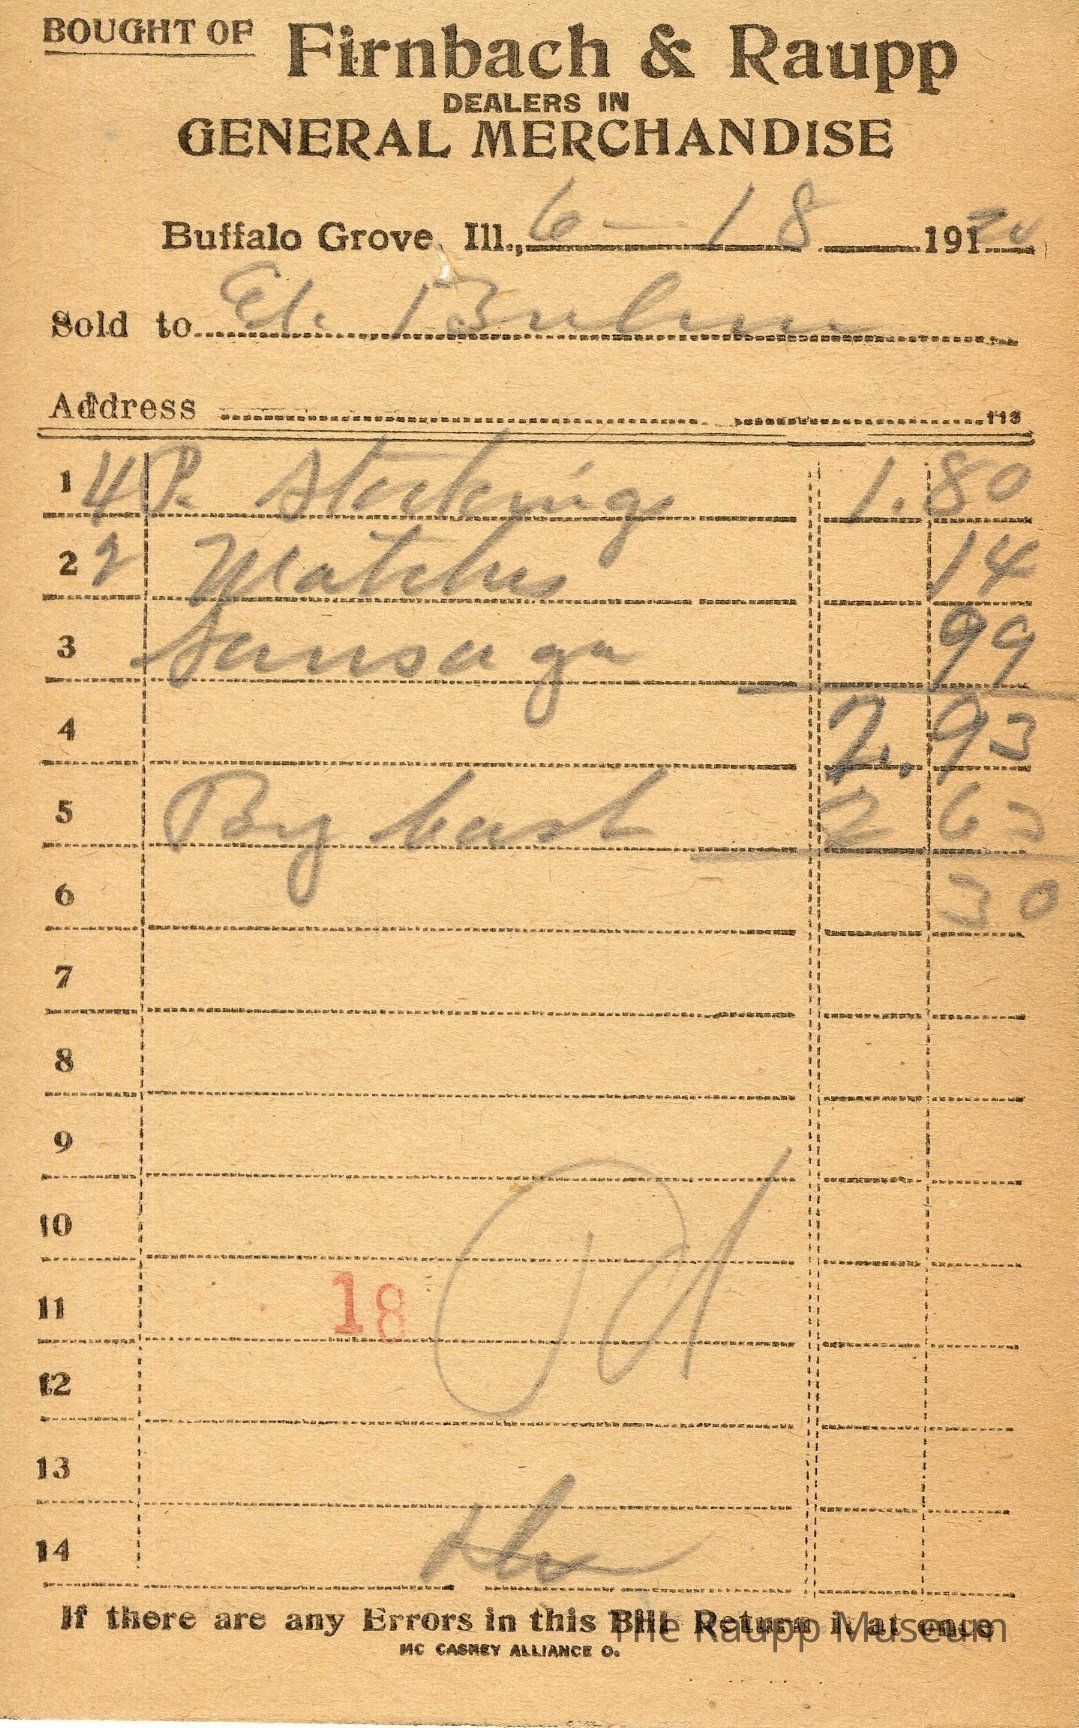 BOUGHT OF Firnbach & Raupp
DEALERS IN
GENERAL MERCHANDISE
Buffalo Grove, Ill., 6-18 191 20
Sold to Ed.
Address 113
1 4 P. Stockings 1.80
2 2 Matches 14
3 Sausage 99
4 2.93
5 By cash 2 63
6 30
7
8
9
10
11 18
12
13
14
If there are any Errors in this Bill Return it at once
The Raupp Museum
MC CASKEY ALLIANCE O.